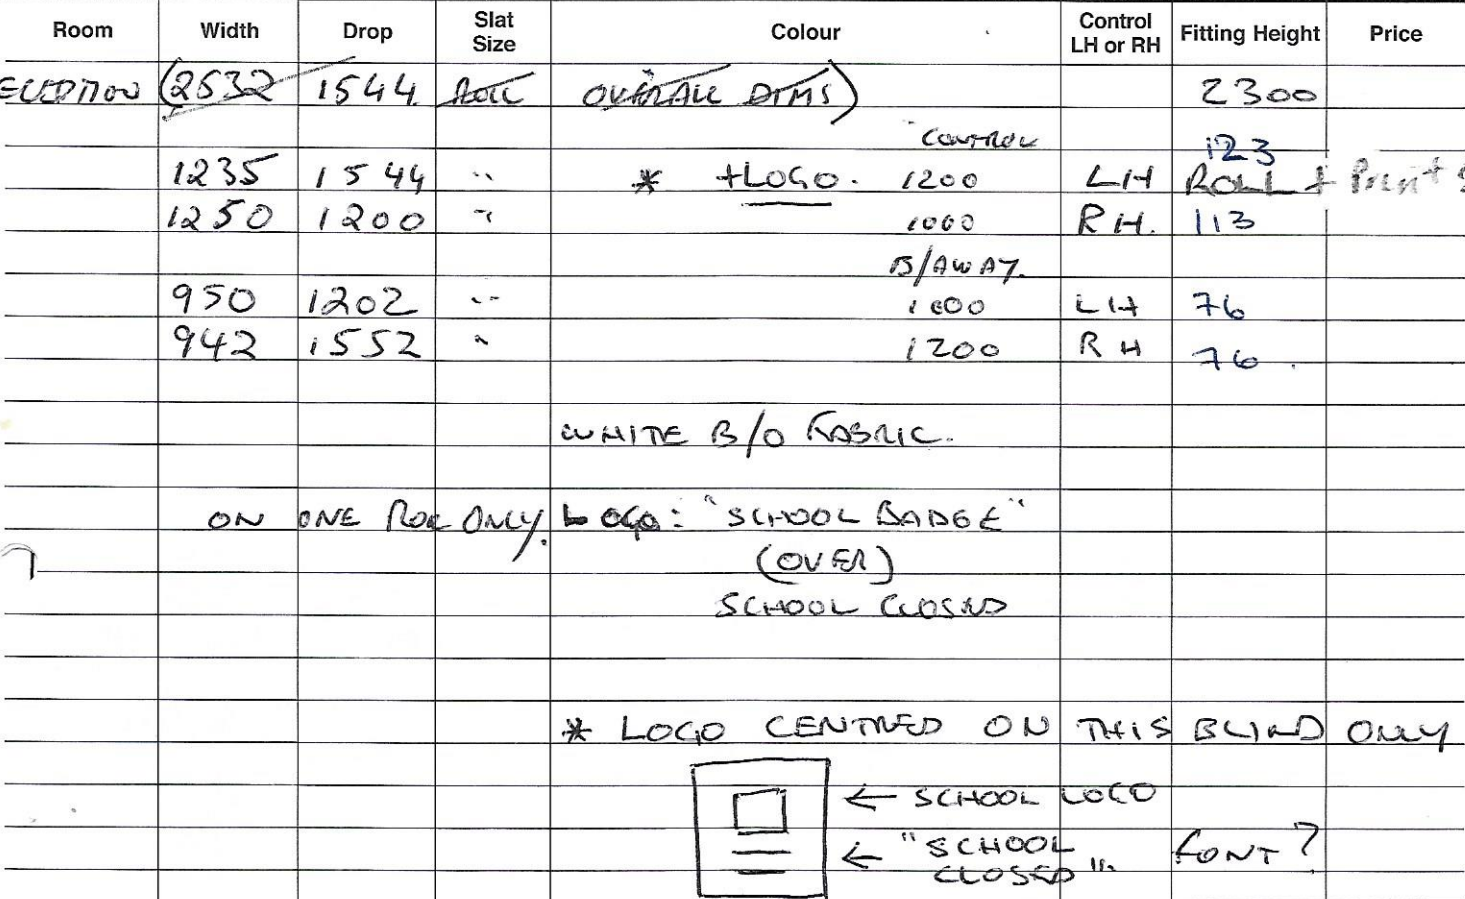 Room Width Drop Slat Size Colour Control LH or RH Fitting Height Price
ECEPTION (2532 1544 ROLL OVERALL DIMS) 2300
CONTROL 123
1235 1544 " * +LOGO. 1200 LH ROLL + Print
1250 1200 " 1000 RH. 113
B/AWAY.
950 1202 " 1000 LH 76
942 1552 " 1200 RH 76
WHITE B/O FABRIC.
ON ONE ROLL ONLY. LOGO: "SCHOOL BADGE"
(OVER)
SCHOOL CLOSED
* LOGO CENTRED ON THIS BLIND ONLY
← SCHOOL LOGO
← "SCHOOL CLOSED" FONT?